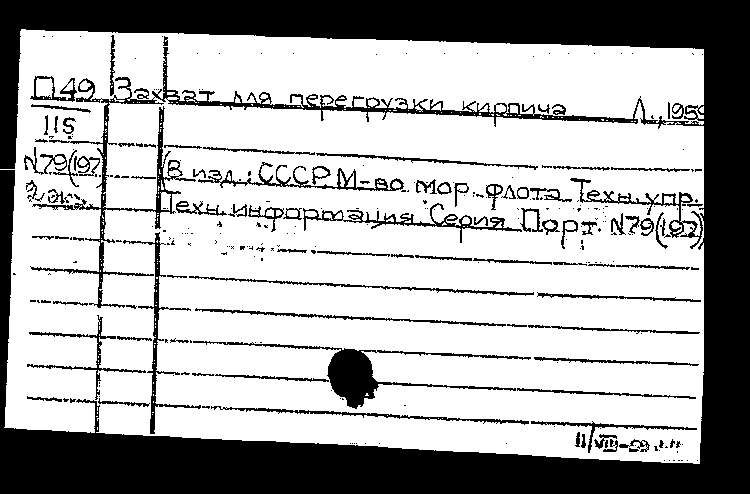 П49 Захват для перегрузки кирпича Л., 1959
115
N79(197) (В изд.: СССР, М-во мор. флота Техн. упр.
2 эк. Техн. информация Серия Порт. N79(197)
11/VIII-59